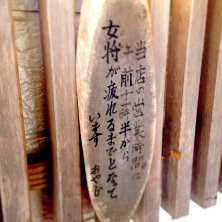 当店の営業時間は
午前十一時半から
女将が疲れるまでとなって
います
おやじ